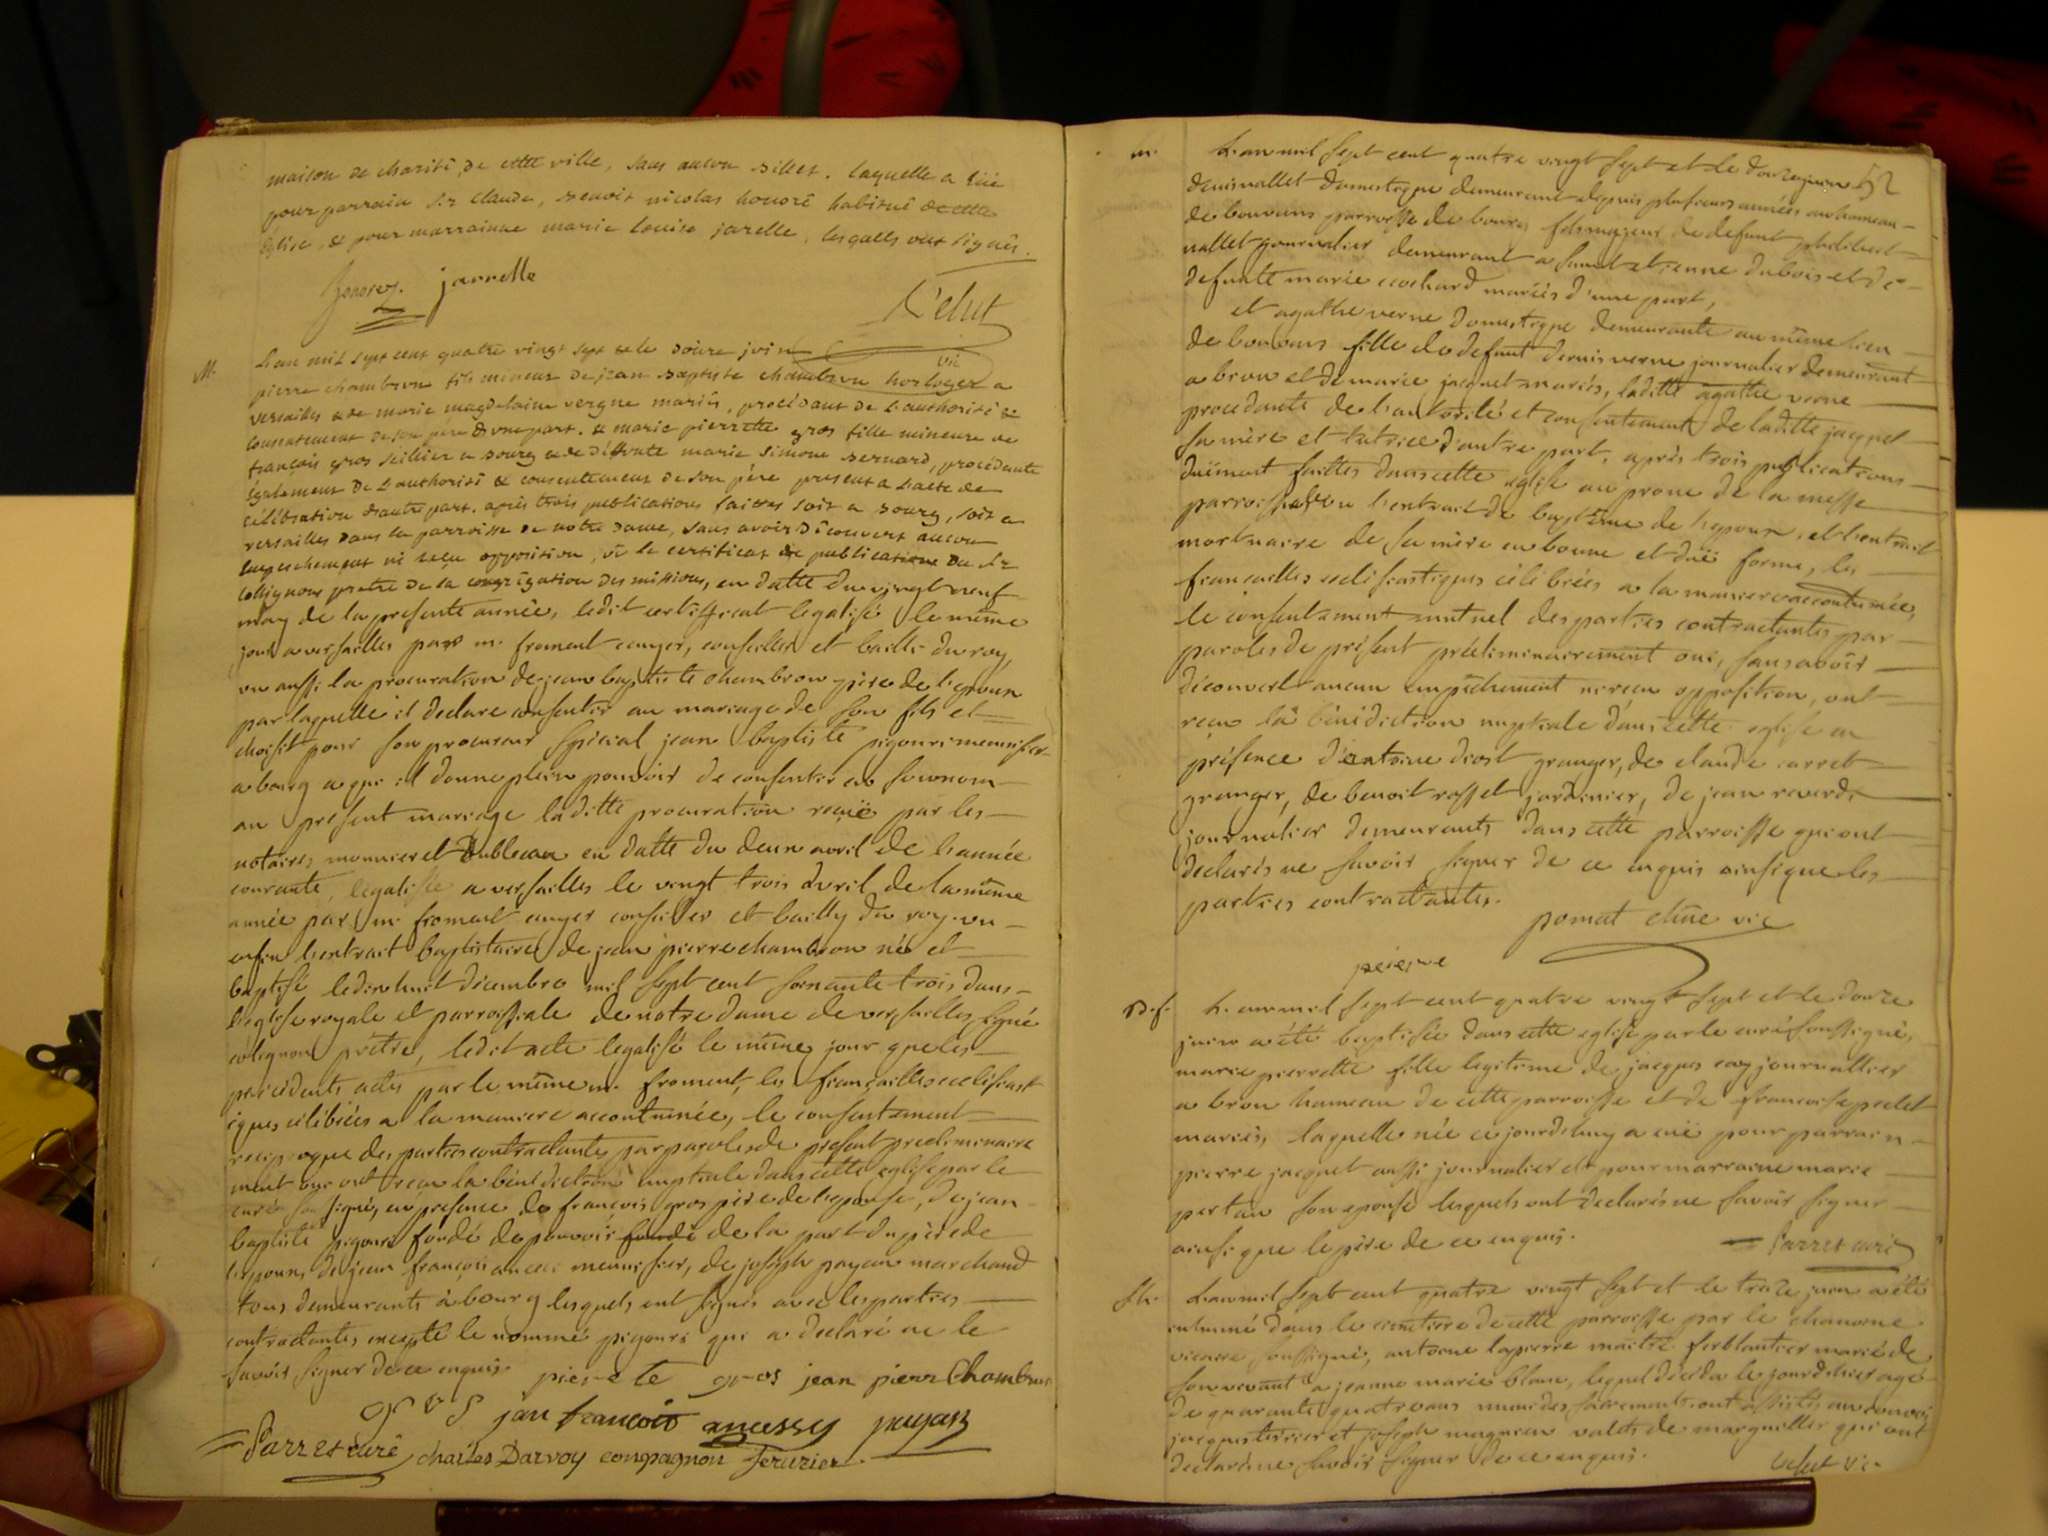 maison de charité de cette ville, sans aucun billet. laquelle a eüe
pour parrain sr claude, benoit nicolas honoré habitué de cette
église, & pour marrainne marie louise jarelle, lesquels ont signés.
honorez. jarrelle
Velut
vic
M. L'an mil sept cent quatre vingt sept & le douze juin
pierre chambron fils mineur de jean baptiste chambron horloger a
versailles & de marie magdelaine vergne mariés, procédant de l'authorité &
consentement de son père d'une part. & marie pierrette gros fille mineure de
françois gros sellier a bourg & de déffunte marie simone bernard, procédante
également de l'authorité & consentement de son père present a l'acte de
célébration d'autre part. après trois publications faittes soit a bourg, soit a
versailles dans la parroisse de notre dame, sans avoir découvert aucun
empeschement ni reçu opposition, vû le certificat de publications du sr
collignon pretre de la congrégation des missions, en datte du vingt neuf
may de la presente année, ledit certifficat legalisé le même
jour a versailles par m. froment conseiller et bailli du roy
vu aussi la procuration de jean baptiste chambron père de l'epoux
par laquelle il declare consentir au mariage de son fils et
choisit pour son procureur special jean baptiste pigouri menuisier
a bourg a qui il donne plein pouvoir de consentir en son nom
au present mariage laditte procuration reçuë par les
notaires monnier et Dubleau en datte du deux avril de l'année
courante, legalisée a versailles le vingt trois avril de la même
année par m. froment conseiller et bailly du roy. vu
enfin l'extrait baptistaire de jean pierre chambron né et
baptisé le dix huit décembre mil sept cent soixante trois dans
l'eglise royale et parroissiale de notre dame de versailles, signé
colignon prêtre, ledit acte legalisé le même jour que les
précédents actes par le même m. froment, les fiançailles ecclésiast
iques célébrées a la maniere accoutumée, le consentement
reciproque des parties contractantes par paroles de present preliminaire
ment oui ont reçu la bénédiction nuptiale dans cette eglise par le
curé soussigné, en presence de françois gros père de l'epouse, de jean
baptiste pigouri fondé de pouvoir fondé de la part du père de
l'epoux, de jean françois ancessi menuisier, de joseph payan marchand
tous demeurants à bourg lesquels ont signés avec les parties
contractantes excepté le nommé pigouri qui a declaré ne le
savoir signer de ce enquis. pierete gros jean pierre Chambron
gros jan francois ancessy payan
Parret curé charles Darvoy compagnon serurier
52
m. L'an mil sept cent quatre vingt sept et le douze juin
denis vallet domestique demeurant depuis plusieurs années au hameau
de bouvans parroisse de bourg fils majeur de defunt philibert
vallet journalier demeurant a saint etienne du bois et de
defunte marie cochard mariés d'une part,
et agathe verne domestique demeurante au même lieu
de bouvans fille de defunt denis verne journalier demeurant
a brou et de marie jacquet mariés, laditte agathe verne
procedante de l'autorité et consentement de laditte jacquet
sa mère et tutrice d'autre part, après trois publications
duëment faittes dans cette eglise au prone de la messe
parroissiale vu l'extrait de baptême de l'epoux, et l'extrait
mortuaire de sa mère en bonne et duë forme, les
fiançailles ecclésiastiques célébrées a la maniere accoutumée,
le consentement mutuel des parties contractantes par
paroles de présent préliminairement oui, sans avoir
découvert aucun empêchement ni reçu opposition, ont
reçu la bénédiction nuptiale dans cette eglise en
présence d'antoine diost granger, de claude carret
granger, de benoit rosset jardinier, de jean reverdi
journalier demeurants dans cette parroisse qui ont
declarés ne savoir signer de ce enquis ainsi que les
parties contractantes.
pomat vic
B.f. L'an mil sept cent quatre vingt sept et le douze
juin a été baptisée dans cette eglise par le curé soussigné,
marie pierrette fille legitime de jacques coy journallier
a brou hameau de cette parroisse et de françoise pelet
mariés, laquelle née ce jourd'huy a euë pour parrain
pierre jacquet aussi journalier et pour marraine marie
pertan son epouse lesquels ont declarés ne savoir signer
ainsi que le père de ce enquis.
Parret curé
L'an mil sept cent quatre vingt sept et le treize juin a été
inhumé dans le cimetierre de cette parroisse par le chanoine
vicaire soussigné, antoine lapierre maitre ferblantier marié de
son vivant a jeanne marie blanc, lequel décéda le jour d'hier agé
de quarante quatre ans muni des sacrements. ont assistés au convoi
jacques et joseph magnieu valets de marguillier qui ont
declarés ne savoir signer de ce enquis.
velut vic